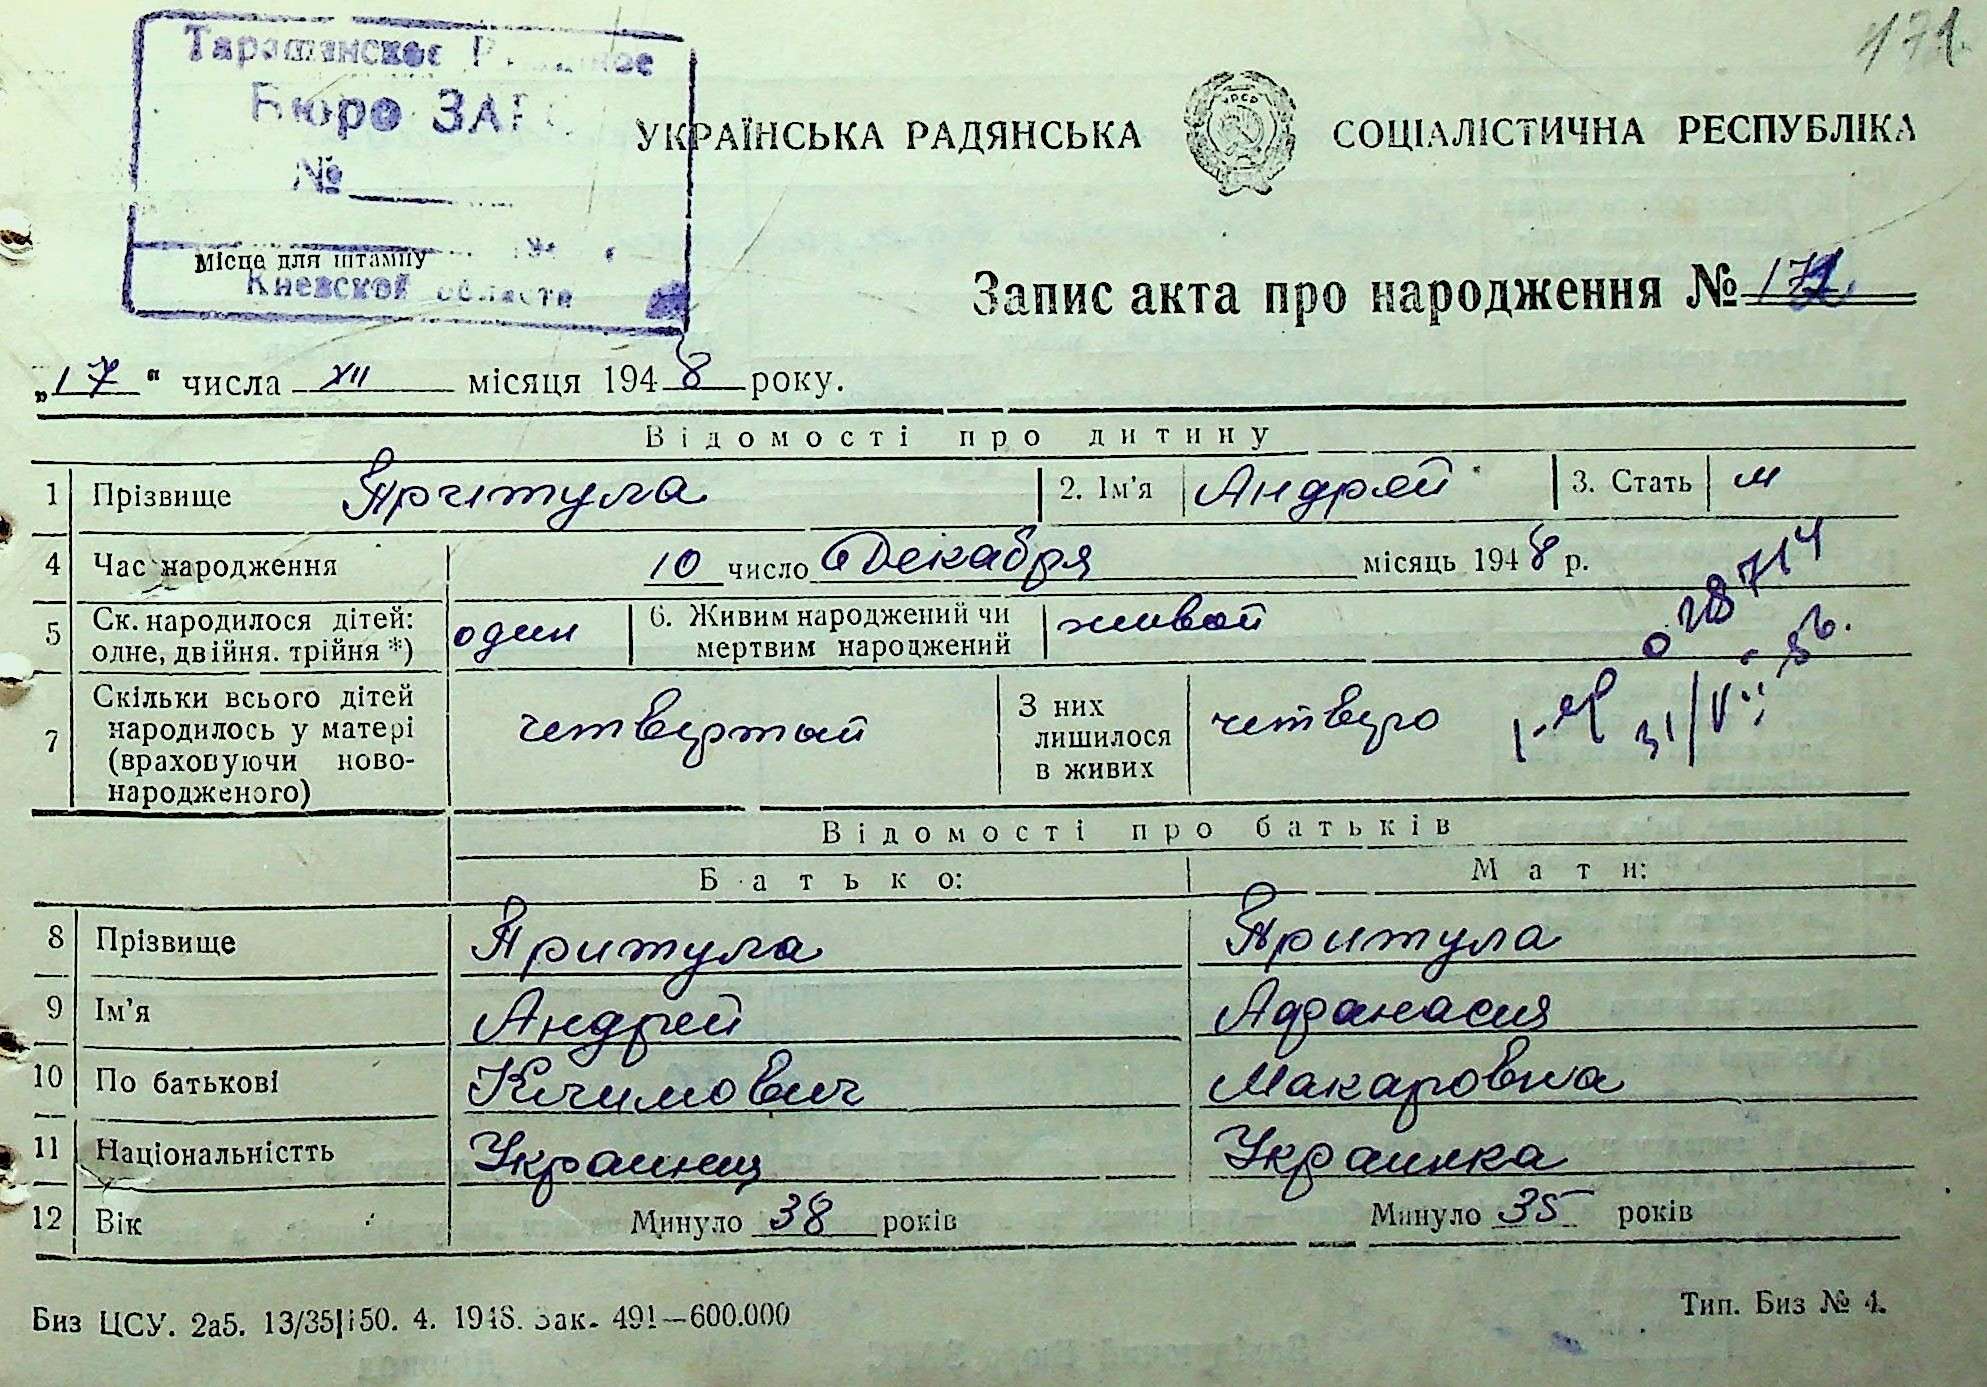 171
Таращанское
Бюро ЗАГС
№
Місце для штампу
Киевской области
УКРАЇНСЬКА РАДЯНСЬКА СОЦІАЛІСТИЧНА РЕСПУБЛІКА
УРСР
Запис акта про народження № 171
„17“ числа XII місяця 1948 року.
Відомості про дитину
1 Прізвище Притула 2. Ім'я Андрей 3. Стать м
4 Час народження 10 число Декабря місяць 1948 р.
5 Ск. народилося дітей: одне, двійня. трійня *) один 6. Живим народжений чи мертвим народжений живой
7 Скільки всього дітей народилось у матері (враховуючи ново-народженого) четвертый З них лишилося в живих четверо
Відомості про батьків
Батько: Мати:
8 Прізвище Притула Притула
9 Ім'я Андрей Афанасия
10 По батькові Климович Макаровна
11 Національністть Украинец Украинка
12 Вік Минуло 38 років Минуло 35 років
Биз ЦСУ. 2а5. 4. 1948. Зак. 491—600.000
Тип. Биз № 4.